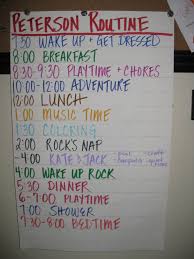 PETERSON ROUTINE
7:30 WAKE UP + GET DRESSED
8:00 BREAKFAST
8:30-9:30 PLAYTIME + CHORES
10:00-12:00 ADVENTURE
12:00 LUNCH
1:00 MUSIC TIME
1:30 COLORING
2:00 ROCK'S NAP
-4:00 - KATE & JACK -
4:00 WAKE UP ROCK
5:30 DINNER
6-7:00 PLAYTIME
7:00 SHOWER
7:30-8:00 BEDTIME